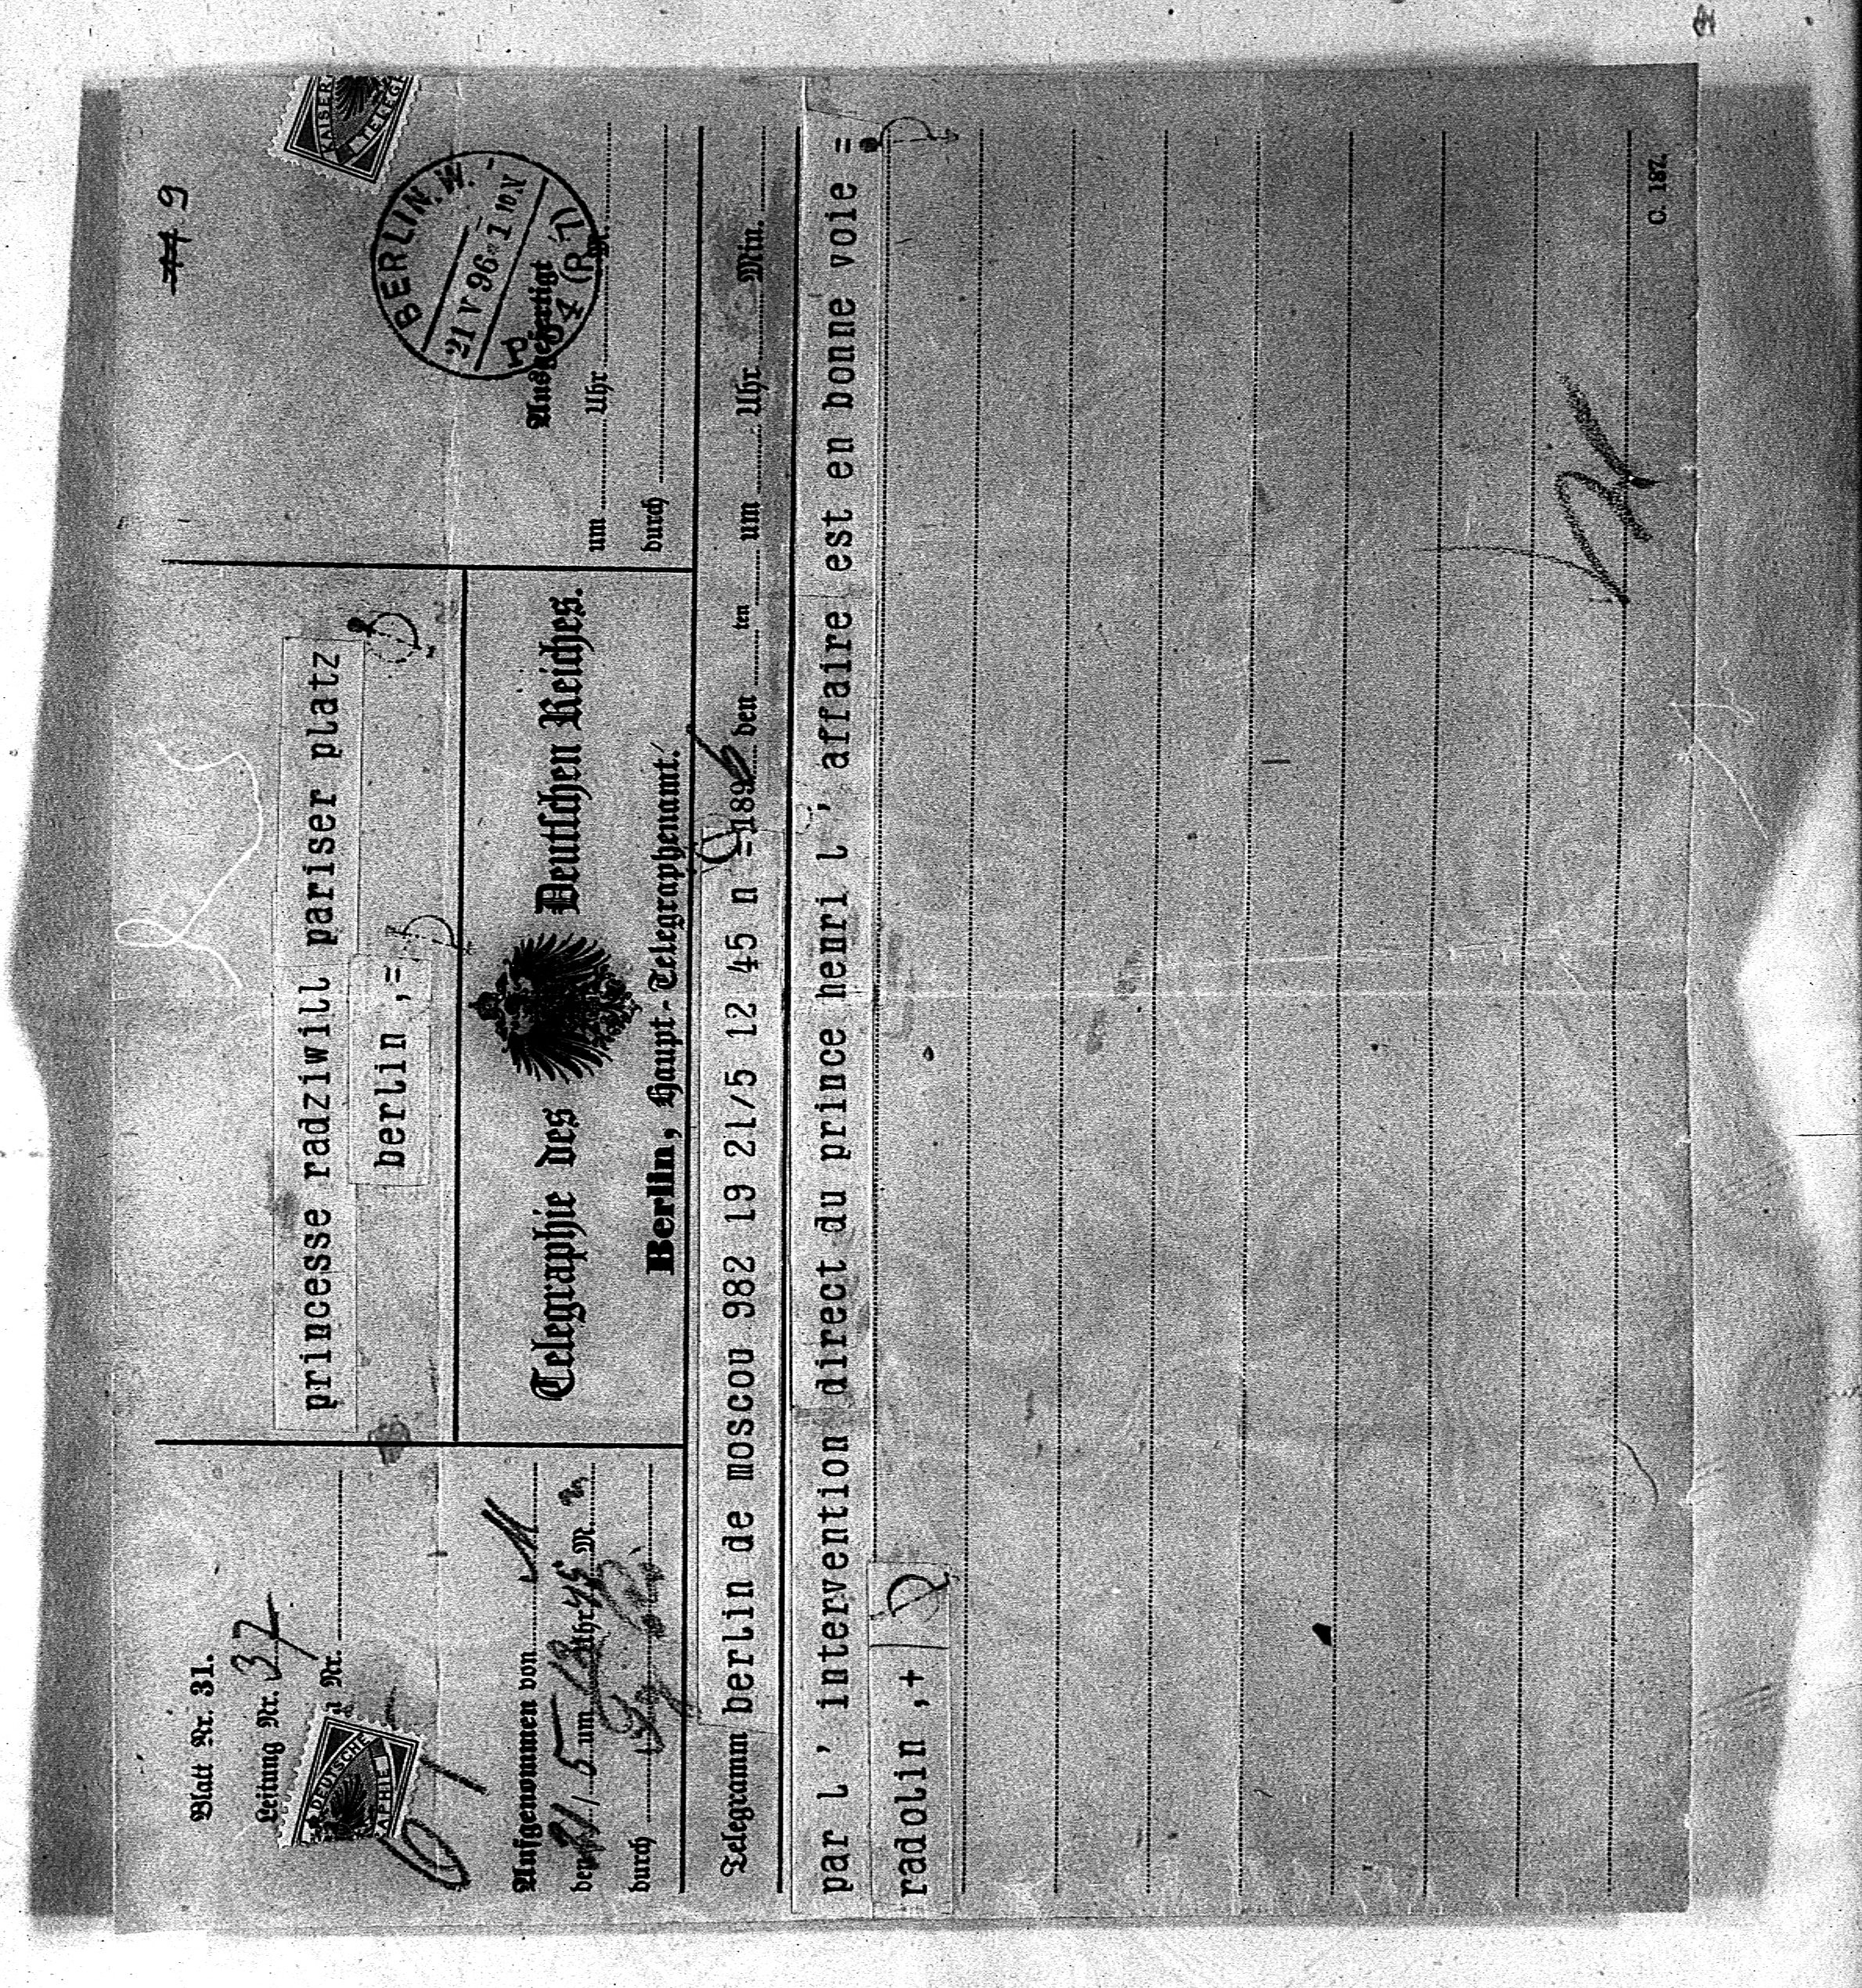 Blatt Nr. 31.
Leitung Nr. 37
Nr.
DEUTSCHE
APHIE
princesse radziwill pariser platz
berlin ,=
9
KAISER
TELEGR
BERLIN, W.
21 V 96
10N
(R 7)
Aufgenommen von
den 21/5 um 12 Uhr 45 M.
durch
Telegraphie des Deutschen Reiches.
Berlin, Haupt-Telegraphenamt.
Ausgefertigt
um Uhr
durch
Telegramm berlin de moscou 982 19 21/5 12 45 n = 1896 den ten um Uhr Min.
par l ' intervention direct du prince henri l ' affaire est en bonne voie =
radolin ,+
C. 187.